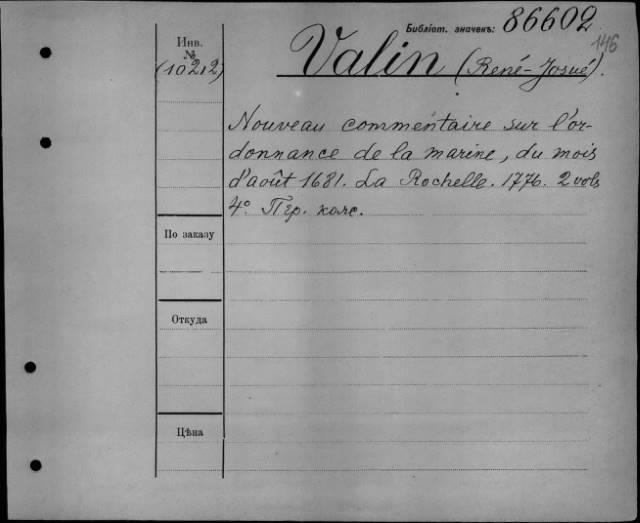 Библіот. значекъ: 86602
146
Инв.
№
(10212)
Valin (René-Josué).
Nouveau commentaire sur l'or-
donnance de la marine, du mois
d'août 1681. La Rochelle. 1776. 2 vols
4º. Пер. кожс.
По заказу
Откуда
Цѣна